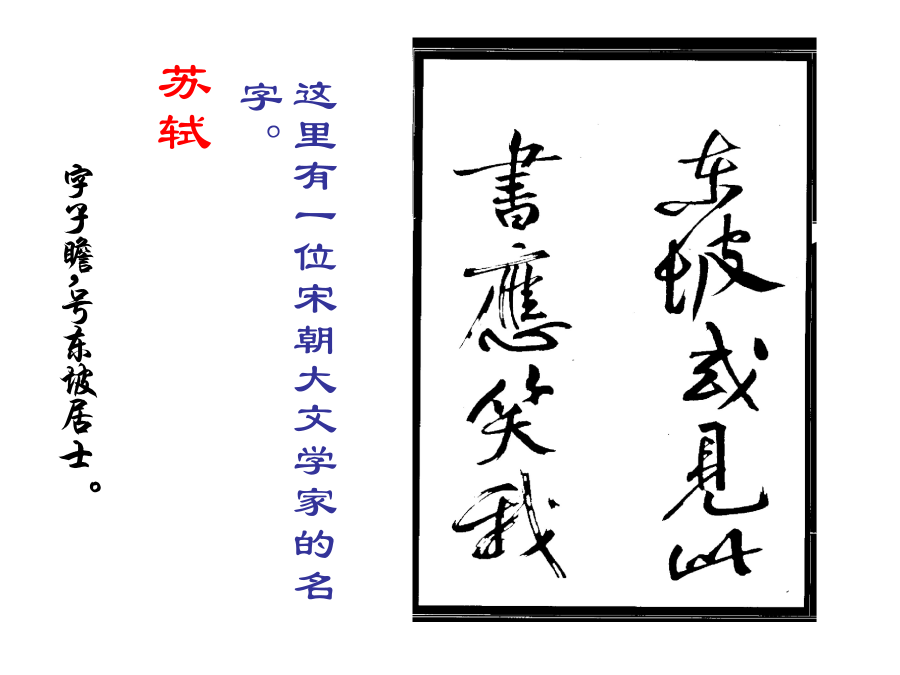 东坡或見此
書應笑我
这里有一位宋朝大文学家的名
字。
苏轼
字子瞻,号东坡居士。